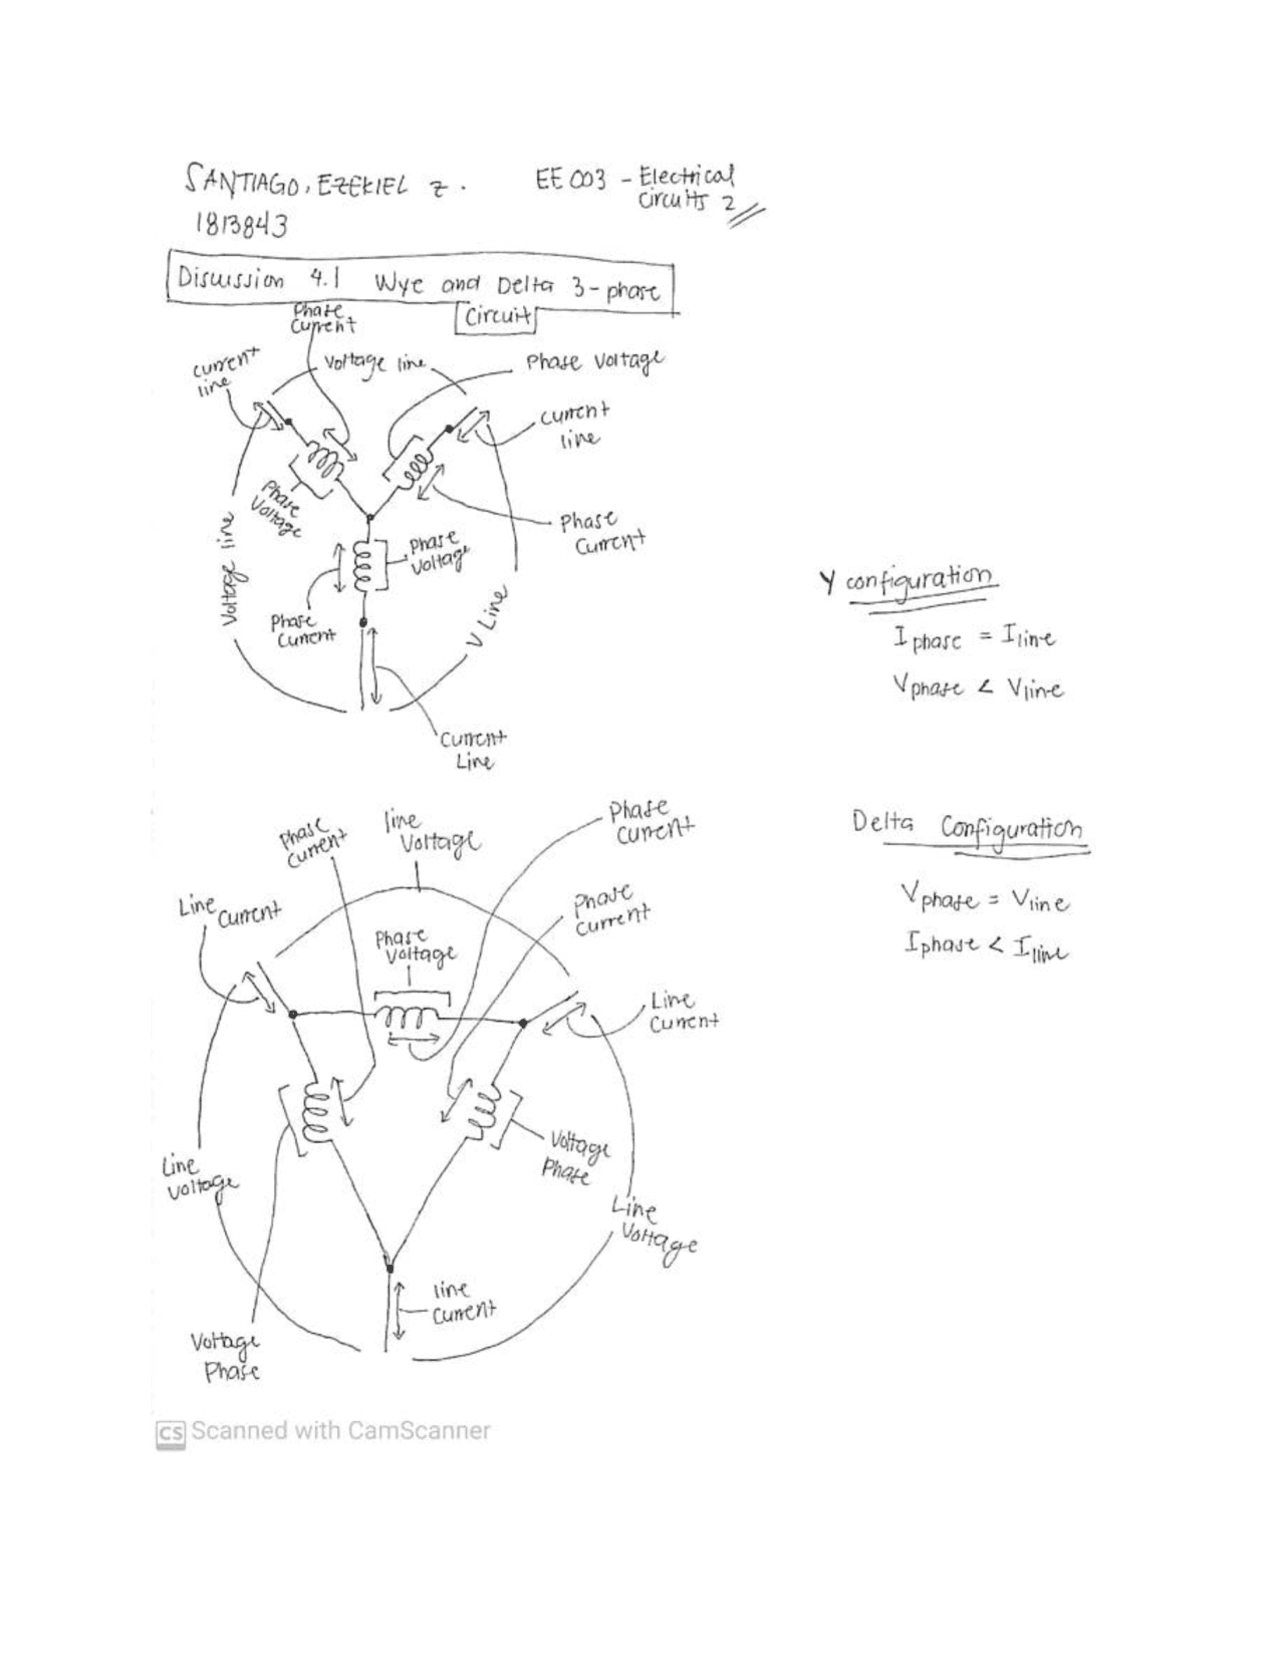 SANTIAGO, EZEKIEL Z.
EE 003 - Electrical
Circuits 2
1813843
Discussion 4.1 Wye and Delta 3-phase
Circuit
Phase
Current
Voltage line
Phase Voltage
current
line
Current
line
Phase
Voltage
Phase
Current
Phase
Voltage
Voltage line
Phase
Current
V Line
Current
Line
Y configuration
I phase = I line
V phase < V line
Phase
Current
line
Voltage
Phase
Current
Line
Current
Phase
Current
Phase
Voltage
Line
Current
Voltage
Phase
Line
Voltage
Line
Voltage
line
Current
Voltage
Phase
Delta Configuration
V phase = V line
I phase < I line
CS Scanned with CamScanner